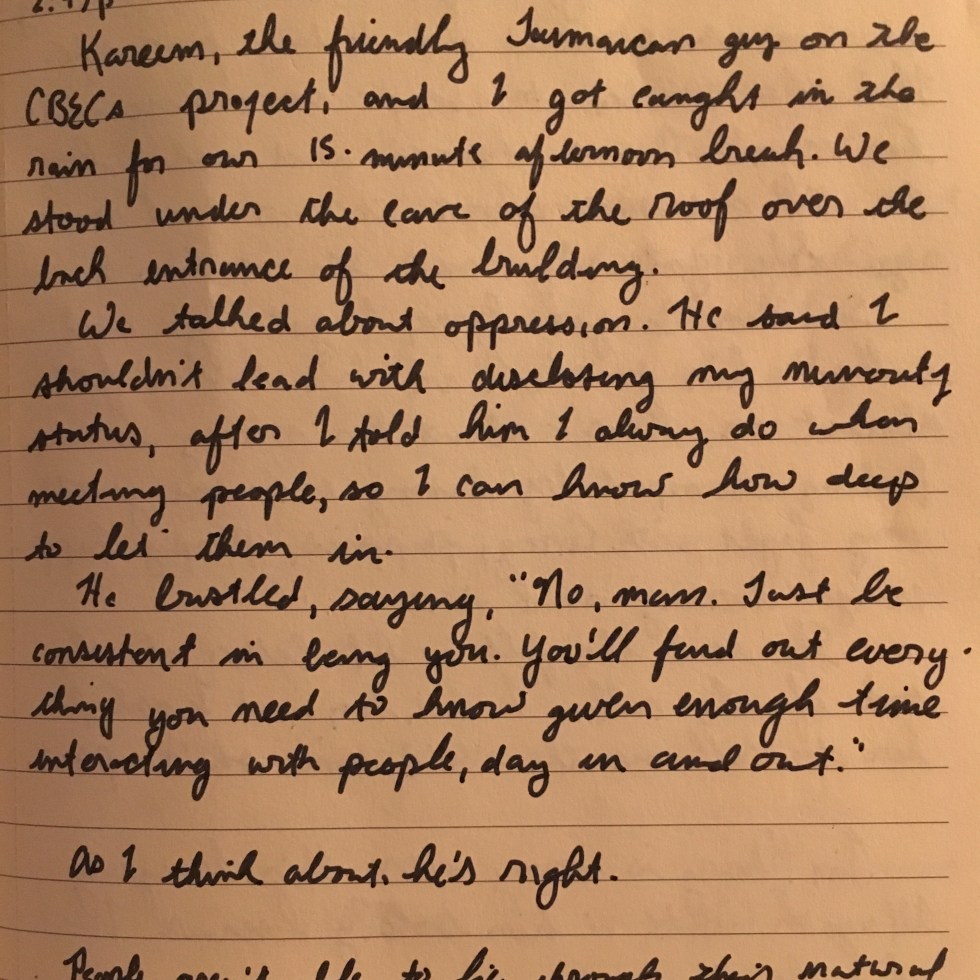 Kareem, the friendly Jarmaican guy on the
CBECs project, and I got caught in the
rain for our 15-minute afternoon break. We
stood under the eave of the roof over the
back entrance of the building.
We talked about oppression. He said I
shouldn't lead with disclosing my minority
status, after I told him I always do when
meeting people, so I can know how deep
to let them in.
He bustled, saying, "No, man. Just be
consistent in being you. You'll find out every-
thing you need to know given enough time
interacting with people, day in and out."
As I think about, he's right.
People to lie through their natural